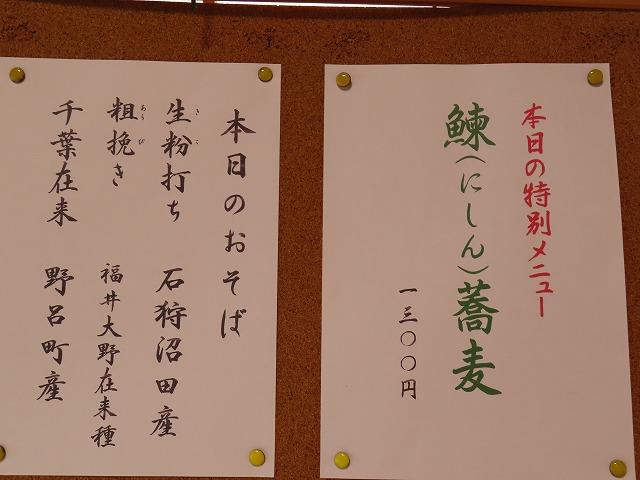 本日の特別メニュー
鰊(にしん)蕎麦
一三〇〇円
本日のおそば
生粉打ち 石狩沼田産
きこ
粗挽き 福井大野在来種
あらび
千葉在来 野呂町産